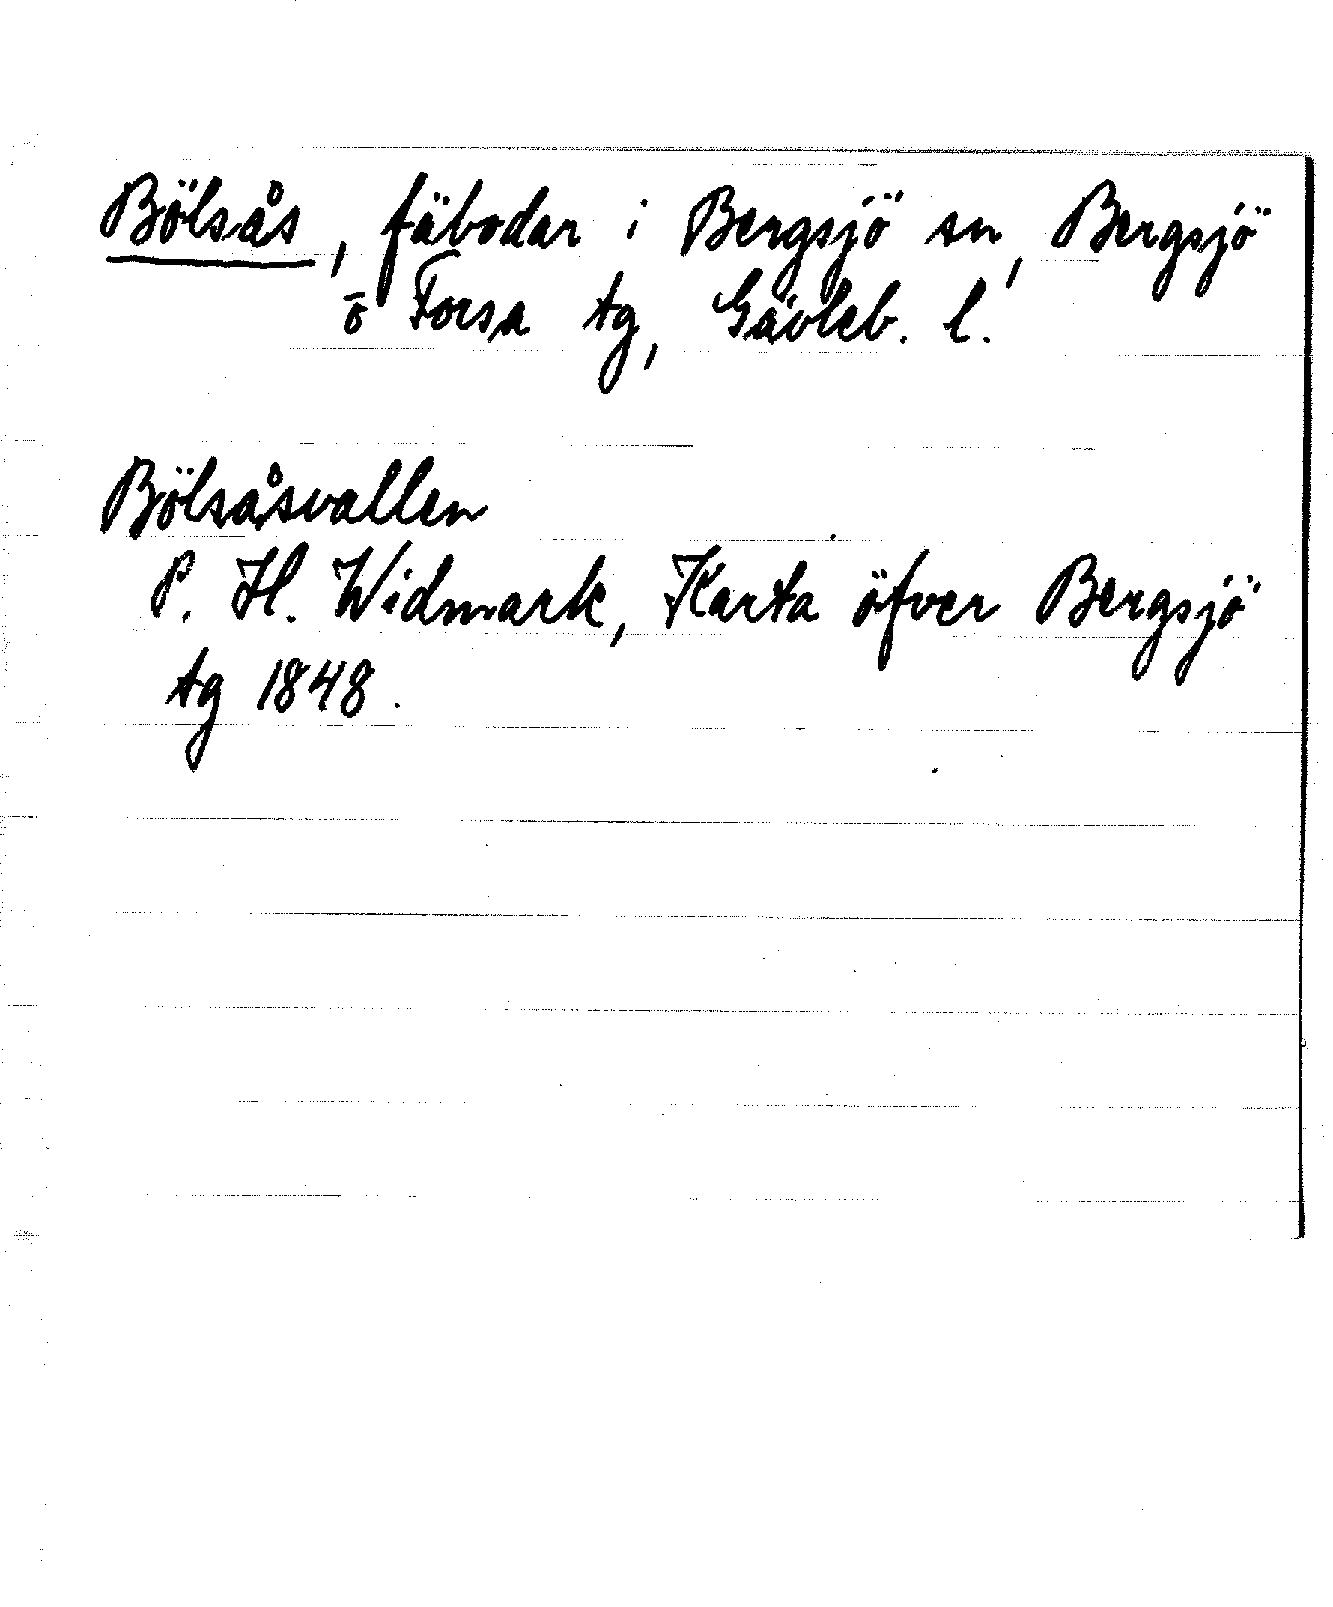 Bölsås, fäbodar i Bergsjö sn, Bergsjö
o Forsa tg, Gävleb. l.
Bölsåsvallen
P. H. Widmark, Karta öfver Bergsjö
tg 1848.